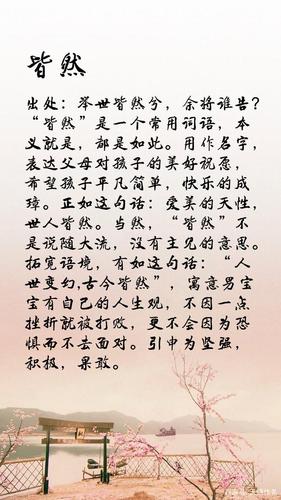 皆然
出处：举世皆然兮，余将谁告？
“皆然”是一个常用词语，本
义就是，都是如此。用作名字，
表达父母对孩子的美好祝愿，
希望孩子平凡简单，快乐的成
璋。正如这句话：爱美的天性，
世人皆然。当然，“皆然”不
是说随大流，没有主见的意思。
拓宽语境，有如这句话：“人
世变幻，古今皆然”，寓意男宝
宝有自己的人生观，不因一点
挫折就被打败，更不会因为恐
惧而不去面对。引申为坚强，
积极，果敢。